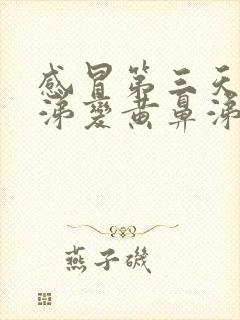 感冒第三天
涕變黄鼻涕
燕子磯